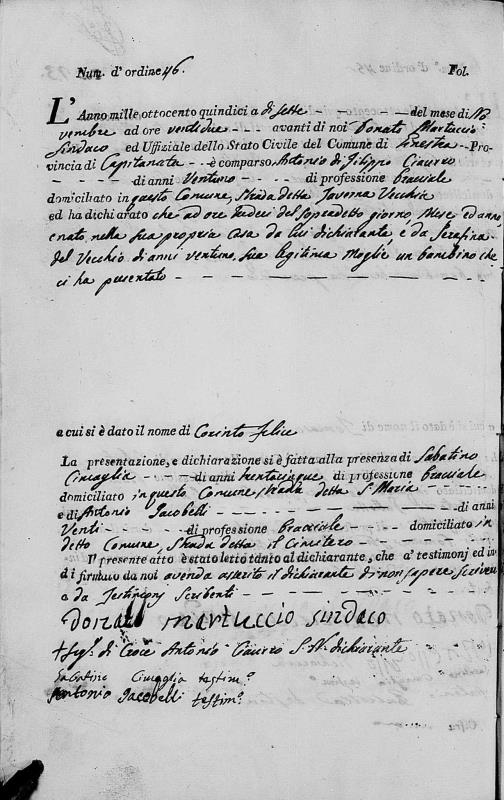 Num. d'ordine 46. Fol.
L'Anno mille ottocento quindici a di sette del mese di No
vembre ad ore ventidue avanti di noi Donato Martuccio
Sindaco ed Uffiziale dello Stato Civile del Comune di Ginestra Pro-
vincia di Capitanata è comparso Antonio di Filippo Ciaurro
di anni Ventuno di professione bracciale
domiciliato in questo Comune, Strada detta Taverna Vecchia
ed ha dichiarato che ad ore tredeci del sopradetto giorno, Mese ed anno,
è nato, nella sua propria Casa da lui dichiarante e da Serafina
del Vecchio di anni ventuno, sua legitima Moglie un bambino che
ci ha presentato
a cui si è dato il nome di Corinto Felice
La presentazione, e dichiarazione si è fatta alla presenza di Sabatino
Cinaglia di anni trentacinque di professione bracciale
domiciliato in questo Comune strada detta S. Maria
e di Antonio Jacobelli di anni
Venti di professione bracciale domiciliato in
detto Comune, Strada detta il Cimitero
Il presente atto è stato letto tanto al dichiarante, che a' testimonj ed in
di firmato da noi avendo asserito il dichiarante di non sapere scrivere
e da Testimony Scribenti
Donato martuccio sindaco
+ Seg.º di Croce Antonio Ciaurro dichiarante
Sabatino Cinaglia testim.º
Antonio Jacobelli testim.º